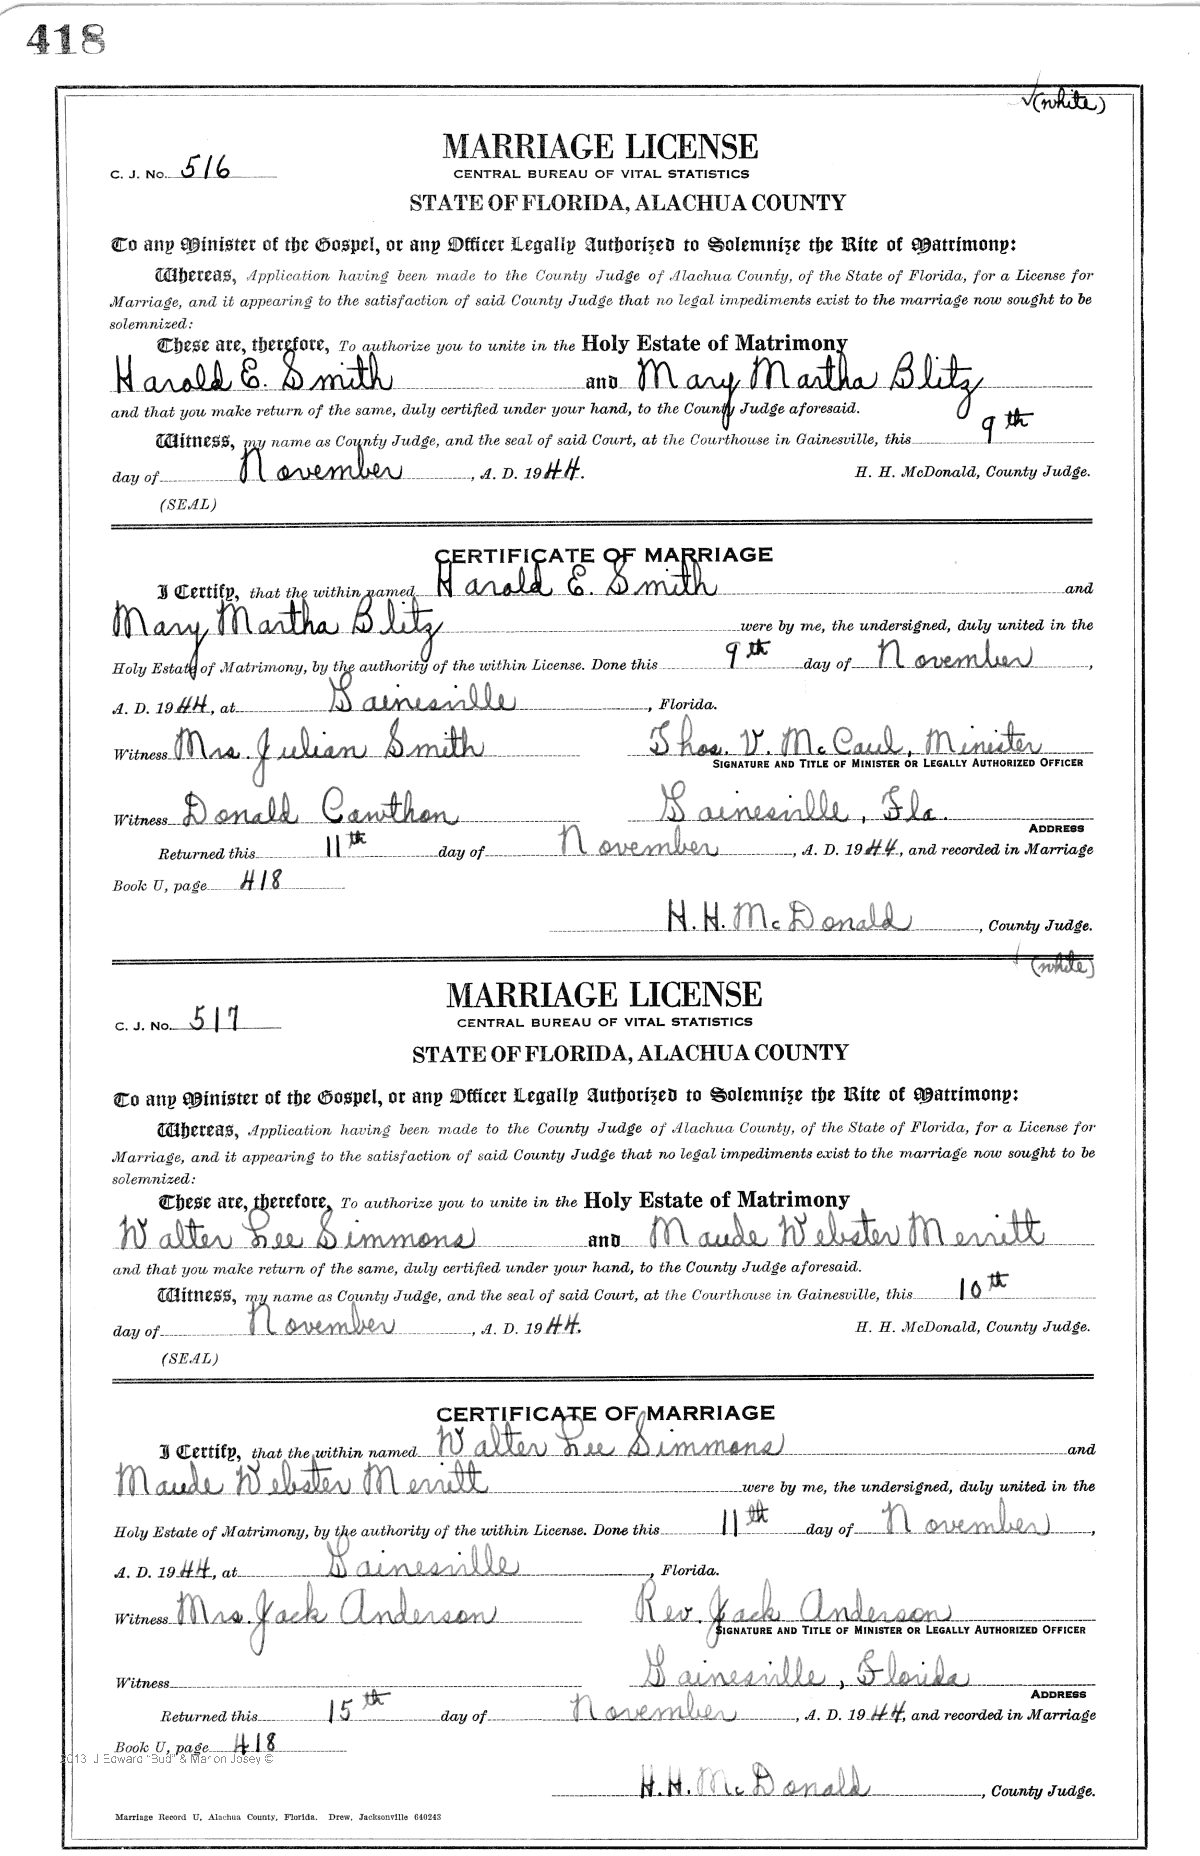 418
(white)
MARRIAGE LICENSE
C. J. No. 516
CENTRAL BUREAU OF VITAL STATISTICS
STATE OF FLORIDA, ALACHUA COUNTY
To any Minister of the Gospel, or any Officer Legally Authorized to Solemnize the Rite of Matrimony:
Whereas, Application having been made to the County Judge of Alachua County, of the State of Florida, for a License for
Marriage, and it appearing to the satisfaction of said County Judge that no legal impediments exist to the marriage now sought to be
solemnized:
These are, therefore, To authorize you to unite in the Holy Estate of Matrimony
Harold E. Smith and Mary Martha Blitz
and that you make return of the same, duly certified under your hand, to the County Judge aforesaid.
Witness, my name as County Judge, and the seal of said Court, at the Courthouse in Gainesville, this 9th
day of November, A. D. 1944. H. H. McDonald, County Judge.
(SEAL)
CERTIFICATE OF MARRIAGE
I Certify, that the within named Harold E. Smith and
Mary Martha Blitz were by me, the undersigned, duly united in the
Holy Estate of Matrimony, by the authority of the within License. Done this 9th day of November,
A. D. 1944, at Gainesville, Florida.
Witness Mrs. Julian Smith Thos. V. McCaul, Minister
SIGNATURE AND TITLE OF MINISTER OR LEGALLY AUTHORIZED OFFICER
Witness Donald Cawthon Gainesville, Fla.
ADDRESS
Returned this 11th day of November, A. D. 1944, and recorded in Marriage
Book U, page 418
H. H. McDonald, County Judge.
(white)
MARRIAGE LICENSE
C. J. No. 517
CENTRAL BUREAU OF VITAL STATISTICS
STATE OF FLORIDA, ALACHUA COUNTY
To any Minister of the Gospel, or any Officer Legally Authorized to Solemnize the Rite of Matrimony:
Whereas, Application having been made to the County Judge of Alachua County, of the State of Florida, for a License for
Marriage, and it appearing to the satisfaction of said County Judge that no legal impediments exist to the marriage now sought to be
solemnized:
These are, therefore, To authorize you to unite in the Holy Estate of Matrimony
Walter Lee Simmons and Maude Webster Merritt
and that you make return of the same, duly certified under your hand, to the County Judge aforesaid.
Witness, my name as County Judge, and the seal of said Court, at the Courthouse in Gainesville, this 10th
day of November, A. D. 1944. H. H. McDonald, County Judge.
(SEAL)
CERTIFICATE OF MARRIAGE
I Certify, that the within named Walter Lee Simmons and
Maude Webster Merritt were by me, the undersigned, duly united in the
Holy Estate of Matrimony, by the authority of the within License. Done this 11th day of November,
A. D. 1944, at Gainesville, Florida.
Witness Mrs. Jack Anderson Rev. Jack Anderson
SIGNATURE AND TITLE OF MINISTER OR LEGALLY AUTHORIZED OFFICER
Witness Gainesville, Florida
ADDRESS
Returned this 15th day of November, A. D. 1944, and recorded in Marriage
Book U, page 418
2013 J Edward "Bud" & Marion Josey ©
H. H. McDonald, County Judge.
Marriage Record U, Alachua County, Florida. Drew, Jacksonville 640243